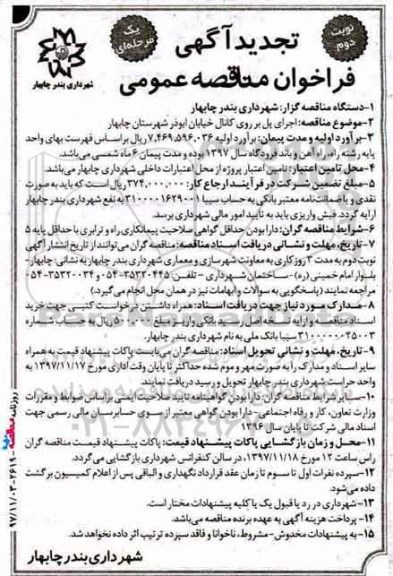 نوبت دوم
تجدید آگهی
یک مرحله‌ای
فراخوان مناقصه عمومی
شهرداری بندر چابهار
۱-دستگاه مناقصه گزار: شهرداری بندر چابهار
۲-موضوع مناقصه: اجرای پل بر روی کانال خیابان ابوذر شهرستان چابهار
۳-برآورد اولیه و مدت پیمان: برآورد اولیه ۷،۴۶۹،۵۹۶،۰۳۶ ریال براساس فهرست بهای واحد
پایه رشته راه، راه آهن و باند فرودگاه سال ۱۳۹۷ بوده و مدت پیمان ۶ ماه شمسی می‌باشد.
۴-محل تامین اعتبار: تامین اعتبار پروژه از محل اعتبارات داخلی شهرداری چابهار می‌باشد.
۵-مبلغ تضمین شرکت در فرآیند ارجاع کار: ۳۷۴،۰۰۰،۰۰۰ ریال است که باید به صورت
نقدی و یا ضمانت‌نامه معتبر بانکی به حساب سیبا ۳۱۰۰۰۰۱۶۲۹۰۰۱ به نفع شهرداری بندر چابهار
ارایه گردد. فیش واریزی باید به تایید امور مالی شهرداری برسد.
۶-شرایط مناقصه گران: دارا بودن حداقل گواهی صلاحیت پیمانکاری راه و ترابری با حداقل پایه ۵
۷-تاریخ، مهلت و نشانی دریافت اسناد مناقصه: مناقصه گران می‌توانند از تاریخ انتشار آگهی
نوبت دوم به مدت ۳ روز کاری به معاونت شهرسازی و معماری شهرداری بندر چابهار به نشانی: چابهار-
بلوار امام خمینی (ره) -ساختمان شهرداری - تلفن: ۳۵۳۲۰۴۴۵-۰۵۴ و ۳۵۳۲۰۰۳۴-۰۵۴
مراجعه نمایند (پاسخگویی به سوالات و ابهامات نیز در همان محل انجام می‌گیرد.)
۸-مدارک مورد نیاز جهت دریافت اسناد: همراه داشتن درخواست کتبی جهت خرید
اسناد مناقصه و ارایه نسخه اصل رسید بانکی واریز مبلغ ۵۰۰،۰۰۰ ریال به حساب شماره
سیبا بانک ملی به نام شهرداری بندر چابهار.
۹-تاریخ، مهلت و نشانی تحویل اسناد: مناقصه گران می‌بایست پاکات پیشنهاد قیمت به همراه
سایر اسناد و مدارک را به صورت مهر و موم شده حداکثر تا پایان وقت اداری مورخ ۱۳۹۷/۱۱/۱۷ به
واحد حراست شهرداری بندر چابهار تحویل و رسید دریافت نمایند.
۱۰-سایر شرایط مناقصه گران: دارا بودن گواهینامه تایید صلاحیت ایمنی براساس ضوابط و مقررات
وزارت تعاون، کار و رفاه اجتماعی - دارا بودن گواهی معتبر از سوی حسابرسان مالی رسمی جهت
اسناد مالی شرکت تا پایان سال ۱۳۹۶
۱۱-محل و زمان بازگشایی پاکات پیشنهاد قیمت: پاکات پیشنهاد قیمت مناقصه گران
راس ساعت ۱۲ مورخ ۱۳۹۷/۱۱/۱۸، در سالن کنفرانس شهرداری بازگشایی می‌گردد.
۱۲-سپرده نفرات اول تا سوم تا زمان عقد قرارداد نگهداری و الباقی پس از اعلام کمیسیون برگشت
داده می‌شود.
۱۳-شهرداری در رد یا قبول یک یا کلیه پیشنهادات مختار است.
۱۴- پرداخت هزینه آگهی به عهده برنده مناقصه می‌باشد.
۱۵-به پیشنهادات مخدوش - مشروط، ناخوانا و فاقد سپرده ترتیب اثر داده نخواهد شد.
شهرداری بندر چابهار
روزنامه مناقصه ۲۶۱۹-۹۷/۱۱/۰۳